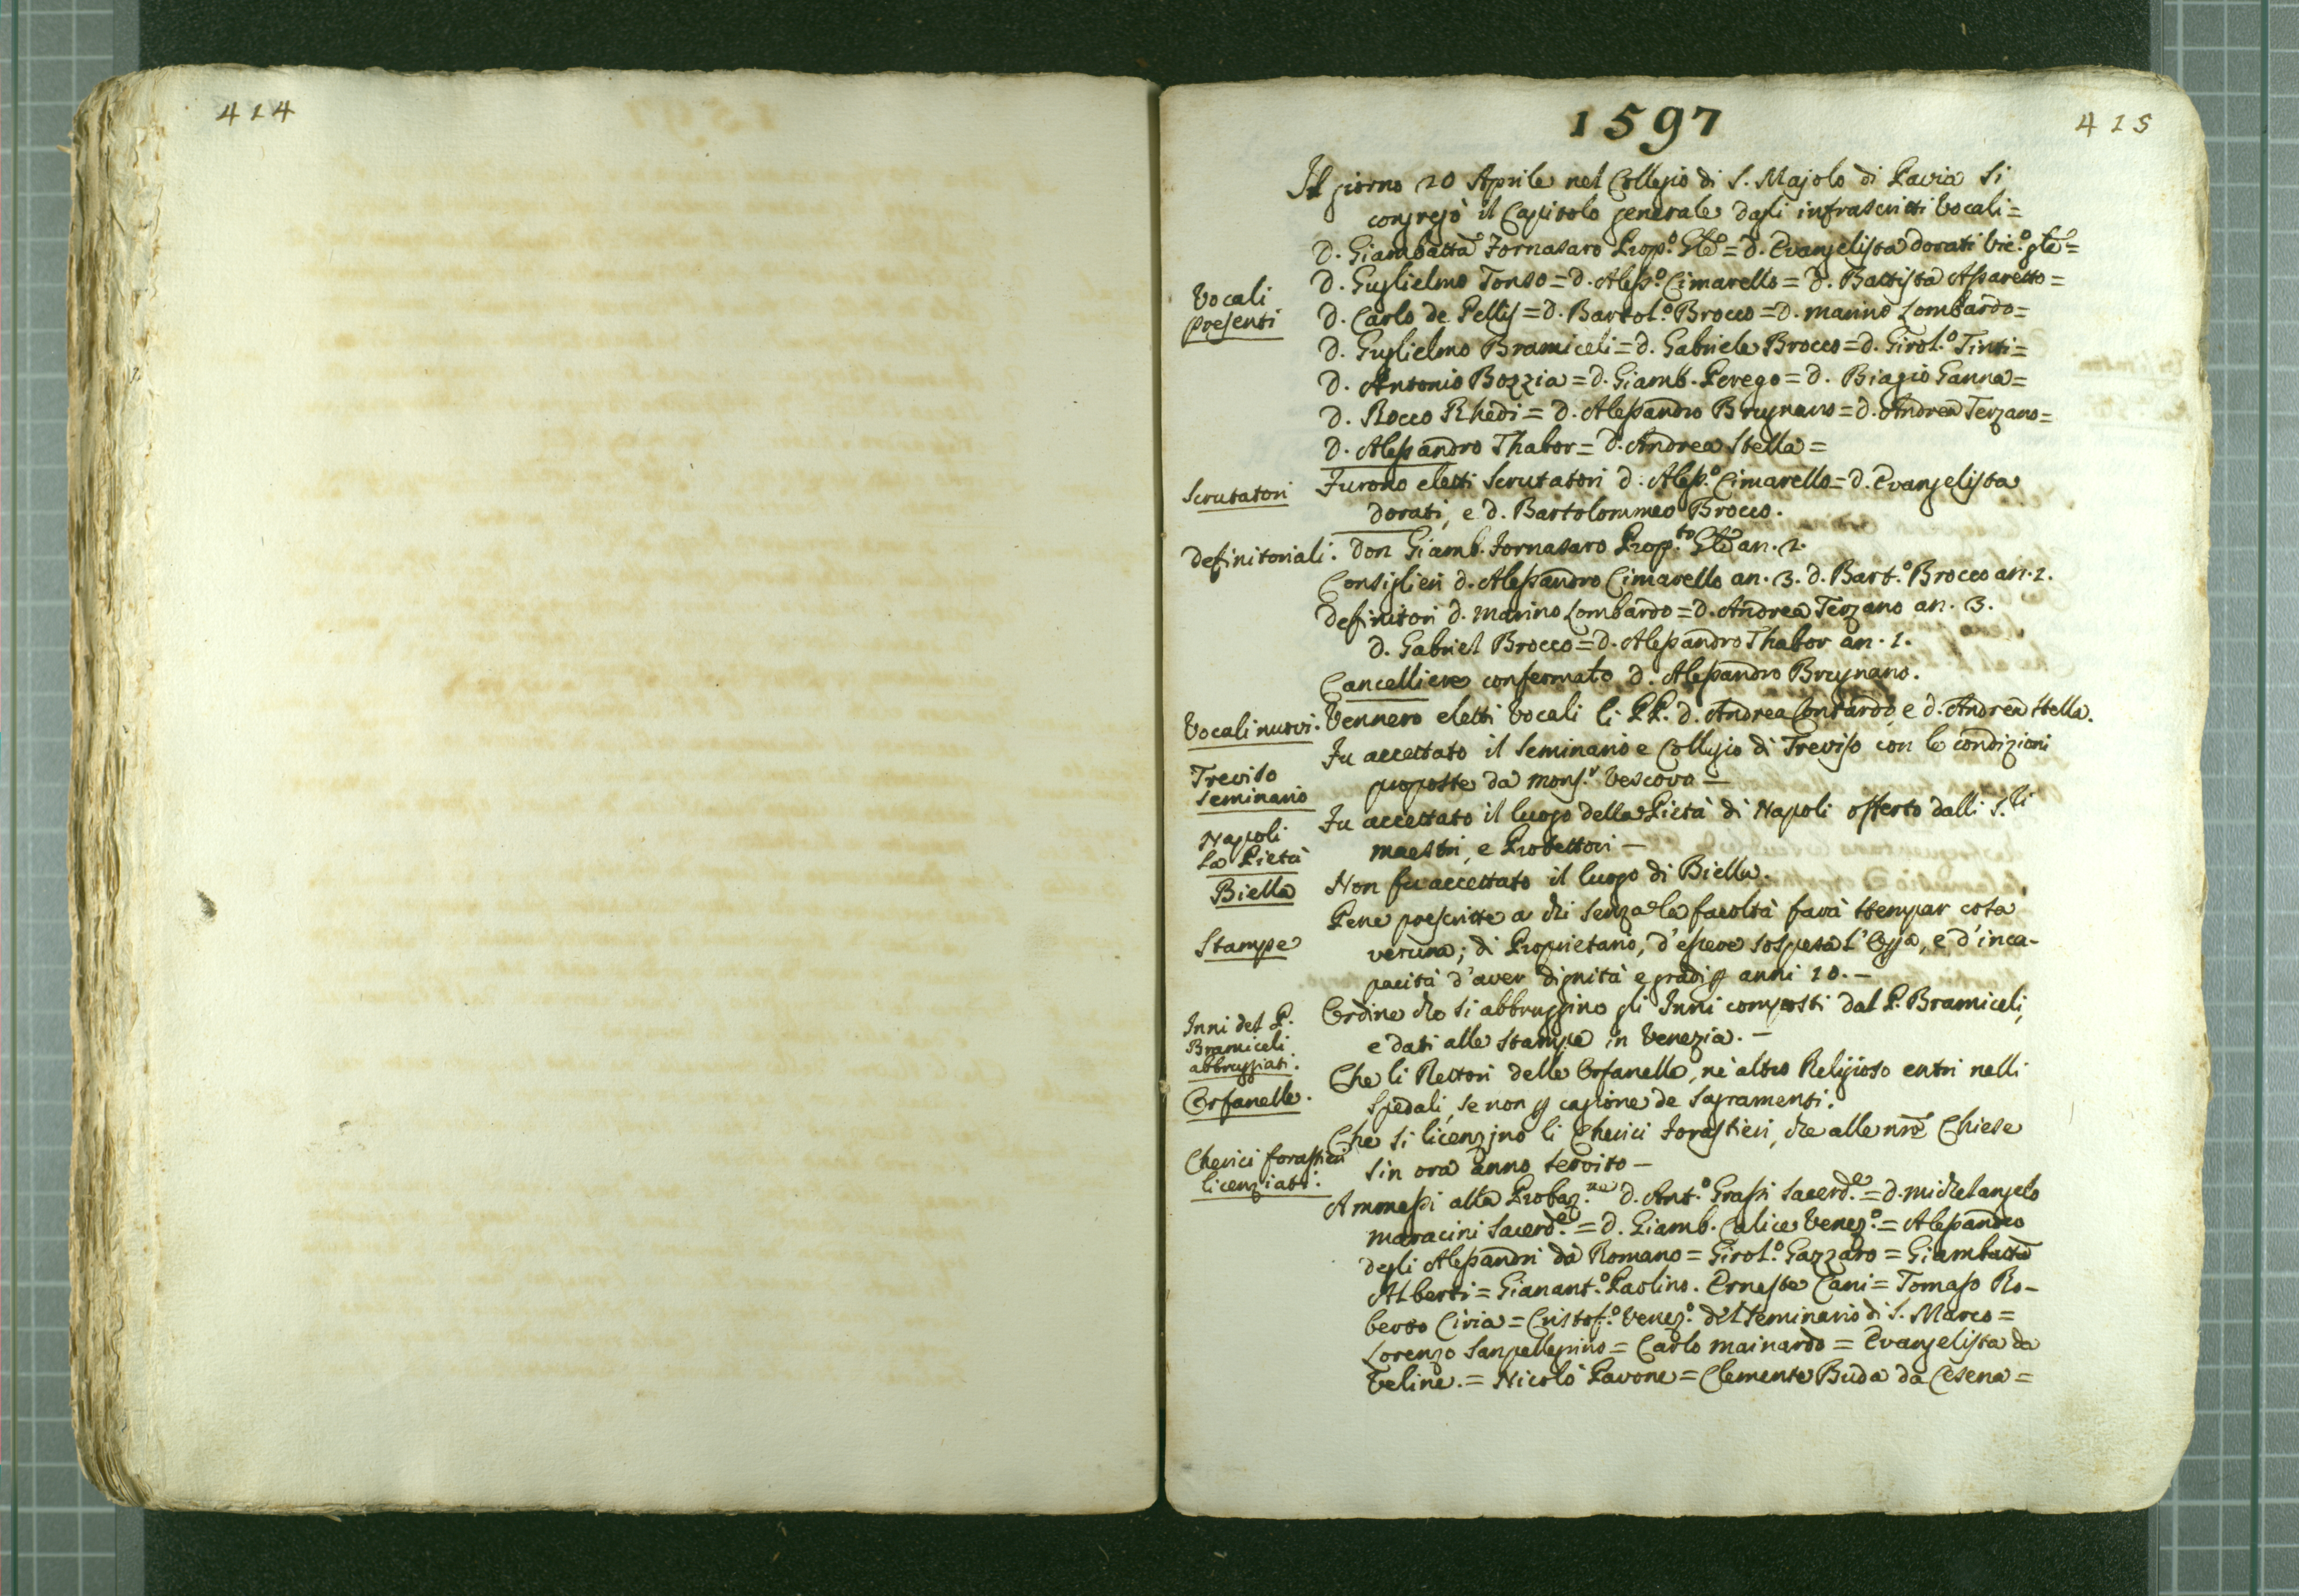 414
1597
415
Il giorno 20 Aprile nel Collegio di S. Majolo di Pavia si
congregò il Capitolo generale dagli infrascritti Vocali =
D. Giambatta Fornasaro Prop.o Gle = D. Evangelista Dorati Vic.o gle =
Vocali
presenti
D. Guglielmo Tonso = D. Aless.o Cimarello = D. Battista Assaretto =
D. Carlo de Pellis = D. Bartol.o Brocco = D. Marino Lombardo =
D. Guglielmo Bramiceli = D. Gabriele Brocco = D. Girol.o Tinti =
D. Antonio Bozzia = D. Giamb. Perego = D. Biagio Ganna =
D. Rocco Rhedi = D. Alessandro Brugnano = D. Andrea Terzano =
D. Alessandro Thabor = D. Andrea Stella =
Scrutatori
Furono eletti Scrutatori D. Aless.o Cimarello = D. Evangelista
Dorati, e D. Bartolommeo Brocco.
Definitoriali.
Don Giamb. Fornasaro Prop.to Gle an. 2.
Consiglieri D. Alessandro Cimarello an. 3. D. Bart.o Brocco an. 2.
Definitori D. Marino Lombardo = D. Andrea Terzano an. 3.
D. Gabriel Brocco = D. Alessandro Thabor an. 1.
Cancelliere confermato D. Alessandro Brugnano.
Vocali nuovi.
Vennero eletti Vocali li PP. D. Andrea Contardo, e D. Andrea Stella.
Treviso
Seminario
Fu accettato il Seminario e Collegio di Treviso con le condizioni
proposte da Mons.r Vescovo —
Napoli
La Pietà
Fu accettato il luogo della Pietà di Napoli offerto dalli S.ri
Maestri, e Protettori —
Biella
Non fu accettato il luogo di Biella.
Stampe
Pene prescritte a chi senza le facoltà farà stempar cosa
veruna; di Proprietario, d'essere sospeso l'Offa, e d'inca-
pacità d'aver dignità e gradi p anni 10. —
Inni del P.
Bramiceli
abbruggiati.
Ordine che si abbruggino gli Inni composti dal P. Bramiceli,
e dati alle stampe in Venezia. —
Orfanelle.
Che li Rettori delle Orfanelle, nè altro Religioso entri nelli
Spedali, se non p cagione de Sagramenti.
Cherici forastieri
licenziati.
Che si licenzino li Cherici Forastieri, che alle nre Chiese
sin ora anno servito —
Ammessi alla Probaz.ne D. Ant.o Grassi Sacerd.e = D. Michelangelo
Maracini Sacerd.e = D. Giamb. Calice Venez.o = Alessandro
degli Alessandri da Romano = Girol.o Gazzaro = Giambatta
Alberti = Gianant.o Paolino. Erneste Cani = Tomaso Ro-
berto Ciria = Cristof.o Venez.o del Seminario di S. Marco =
Lorenzo Sanpellegrino = Carlo Mainardo = Evangelista da
Veline. = Nicolò Pavone = Clemente Buda da Cesena =